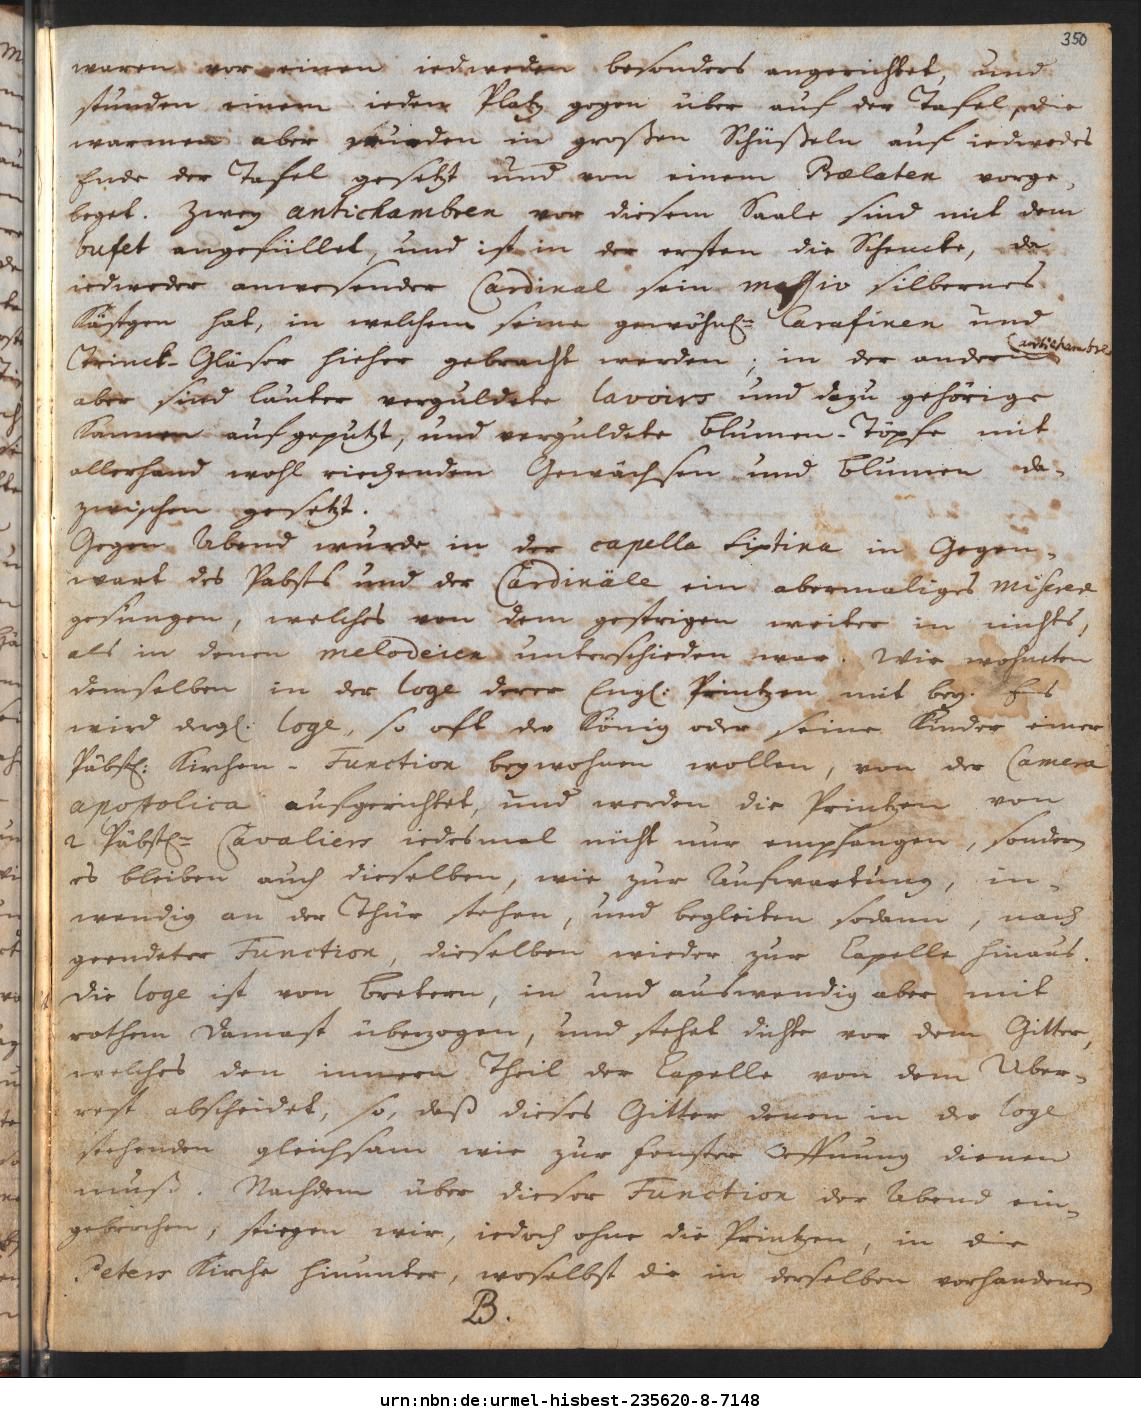 350
waren vor einen iedweden besonders angerichtet, und
stunden einem ieden Platz gegen über auf der Tafel, die
warmen aber wurden in großen Schüßeln auf iedwedes
Ende der Tafel gesetzt und von einem Prælaten vorge-
leget. Zwey antichambren vor diesem Saale sind mit dem
bufet angefüllet, und ist in der ersten die Schencke, da
iedweder anwesender Cardinal sein massiv silbernes
Kästgen hat, in welchem seine gewöhnl: Carafinen und
Trinck-Gläser hieher gebracht werden; in der andern antichambre
aber sind lauter verguldete lavoirs und dazu gehörige
Kannen aufgeputzt, und verguldete Blumen-Töpfe mit
allerhand wohl riechenden Gewächsen und Blumen da-
zwischen gesetzt.
Gegen Abend wurde in der capella Sixtina in Gegen-
wart des Pabsts und der Cardinäle ein abermaliges Miserere
gesungen, welches von dem gestrigen weiter in nichts,
als in denen melodeien unterschieden war. Wir wohneten
demselben in der loge derer Engl: Printzen mit bey. Es
wird dergl: loge, so oft der König oder seine Kinder einer
Päbstl: Kirchen-Function beywohnen wollen, von der Camera
apostolica aufgerichtet, und werden die Printzen von
2 Päbstl: Cavaliers iedesmal nicht nur empfangen, sondern
es bleiben auch dieselben, wie zur Aufwartung, in-
wendig an der Thür stehen, und begleiten sodann, nach
geendeter Function, dieselben wieder zur Capelle hinaus.
Die loge ist von Bretern, in und auswendig aber mit
rothem Damast überzogen, und stehet dichte vor dem Gitter,
welches den innern Theil der Capelle von dem Uber-
rest abscheidet, so, daß dieses Gitter denen in der loge
stehenden gleichsam wie zur Fenster Oeffnung dienen
muß. Nachdem über dieser Function der Abend ein-
gebrochen, stiegen wir, iedoch ohne die Printzen, in die
Peters Kirche hinunter, woselbst die in derselben vorhandenen
B.
urn:nbn:de:urmel-hisbest-235620-8-7148